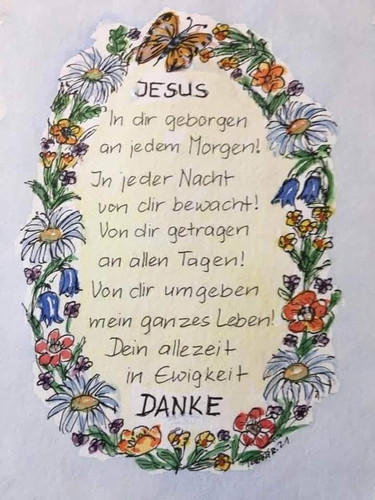 JESUS
In dir geborgen
an jedem Morgen!
In jeder Nacht
von dir bewacht!
Von dir getragen
an allen Tagen!
Von dir umgeben
mein ganzes Leben!
Dein allezeit
in Ewigkeit
DANKE